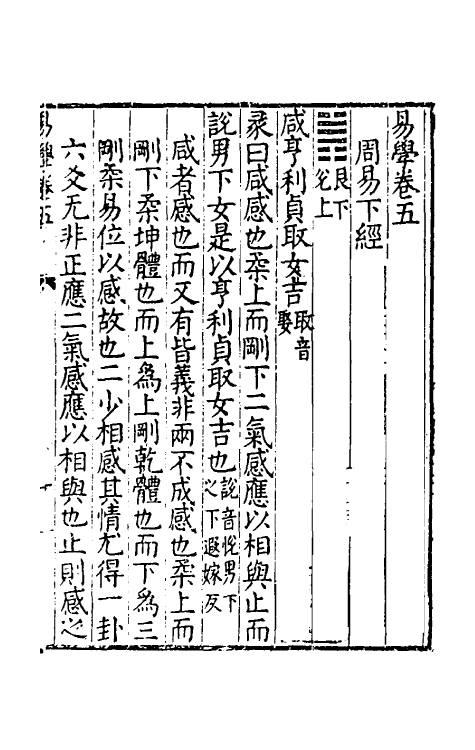 易學卷五
周易下經
䷞艮下兌上
咸亨利貞取女吉取音娶
彖曰咸感也柔上而剛下二氣感應以相與止而
說男下女是以亨利貞取女吉也說音悅男下之下遐嫁反
咸者感也而又有皆義非兩不成感也柔上而
剛下柔坤體也而上為上剛乾體也而下為三
剛柔易位以感故也二少相感其情尤得一卦
六爻无非正應二氣感應以相與也止則感之
易學卷五